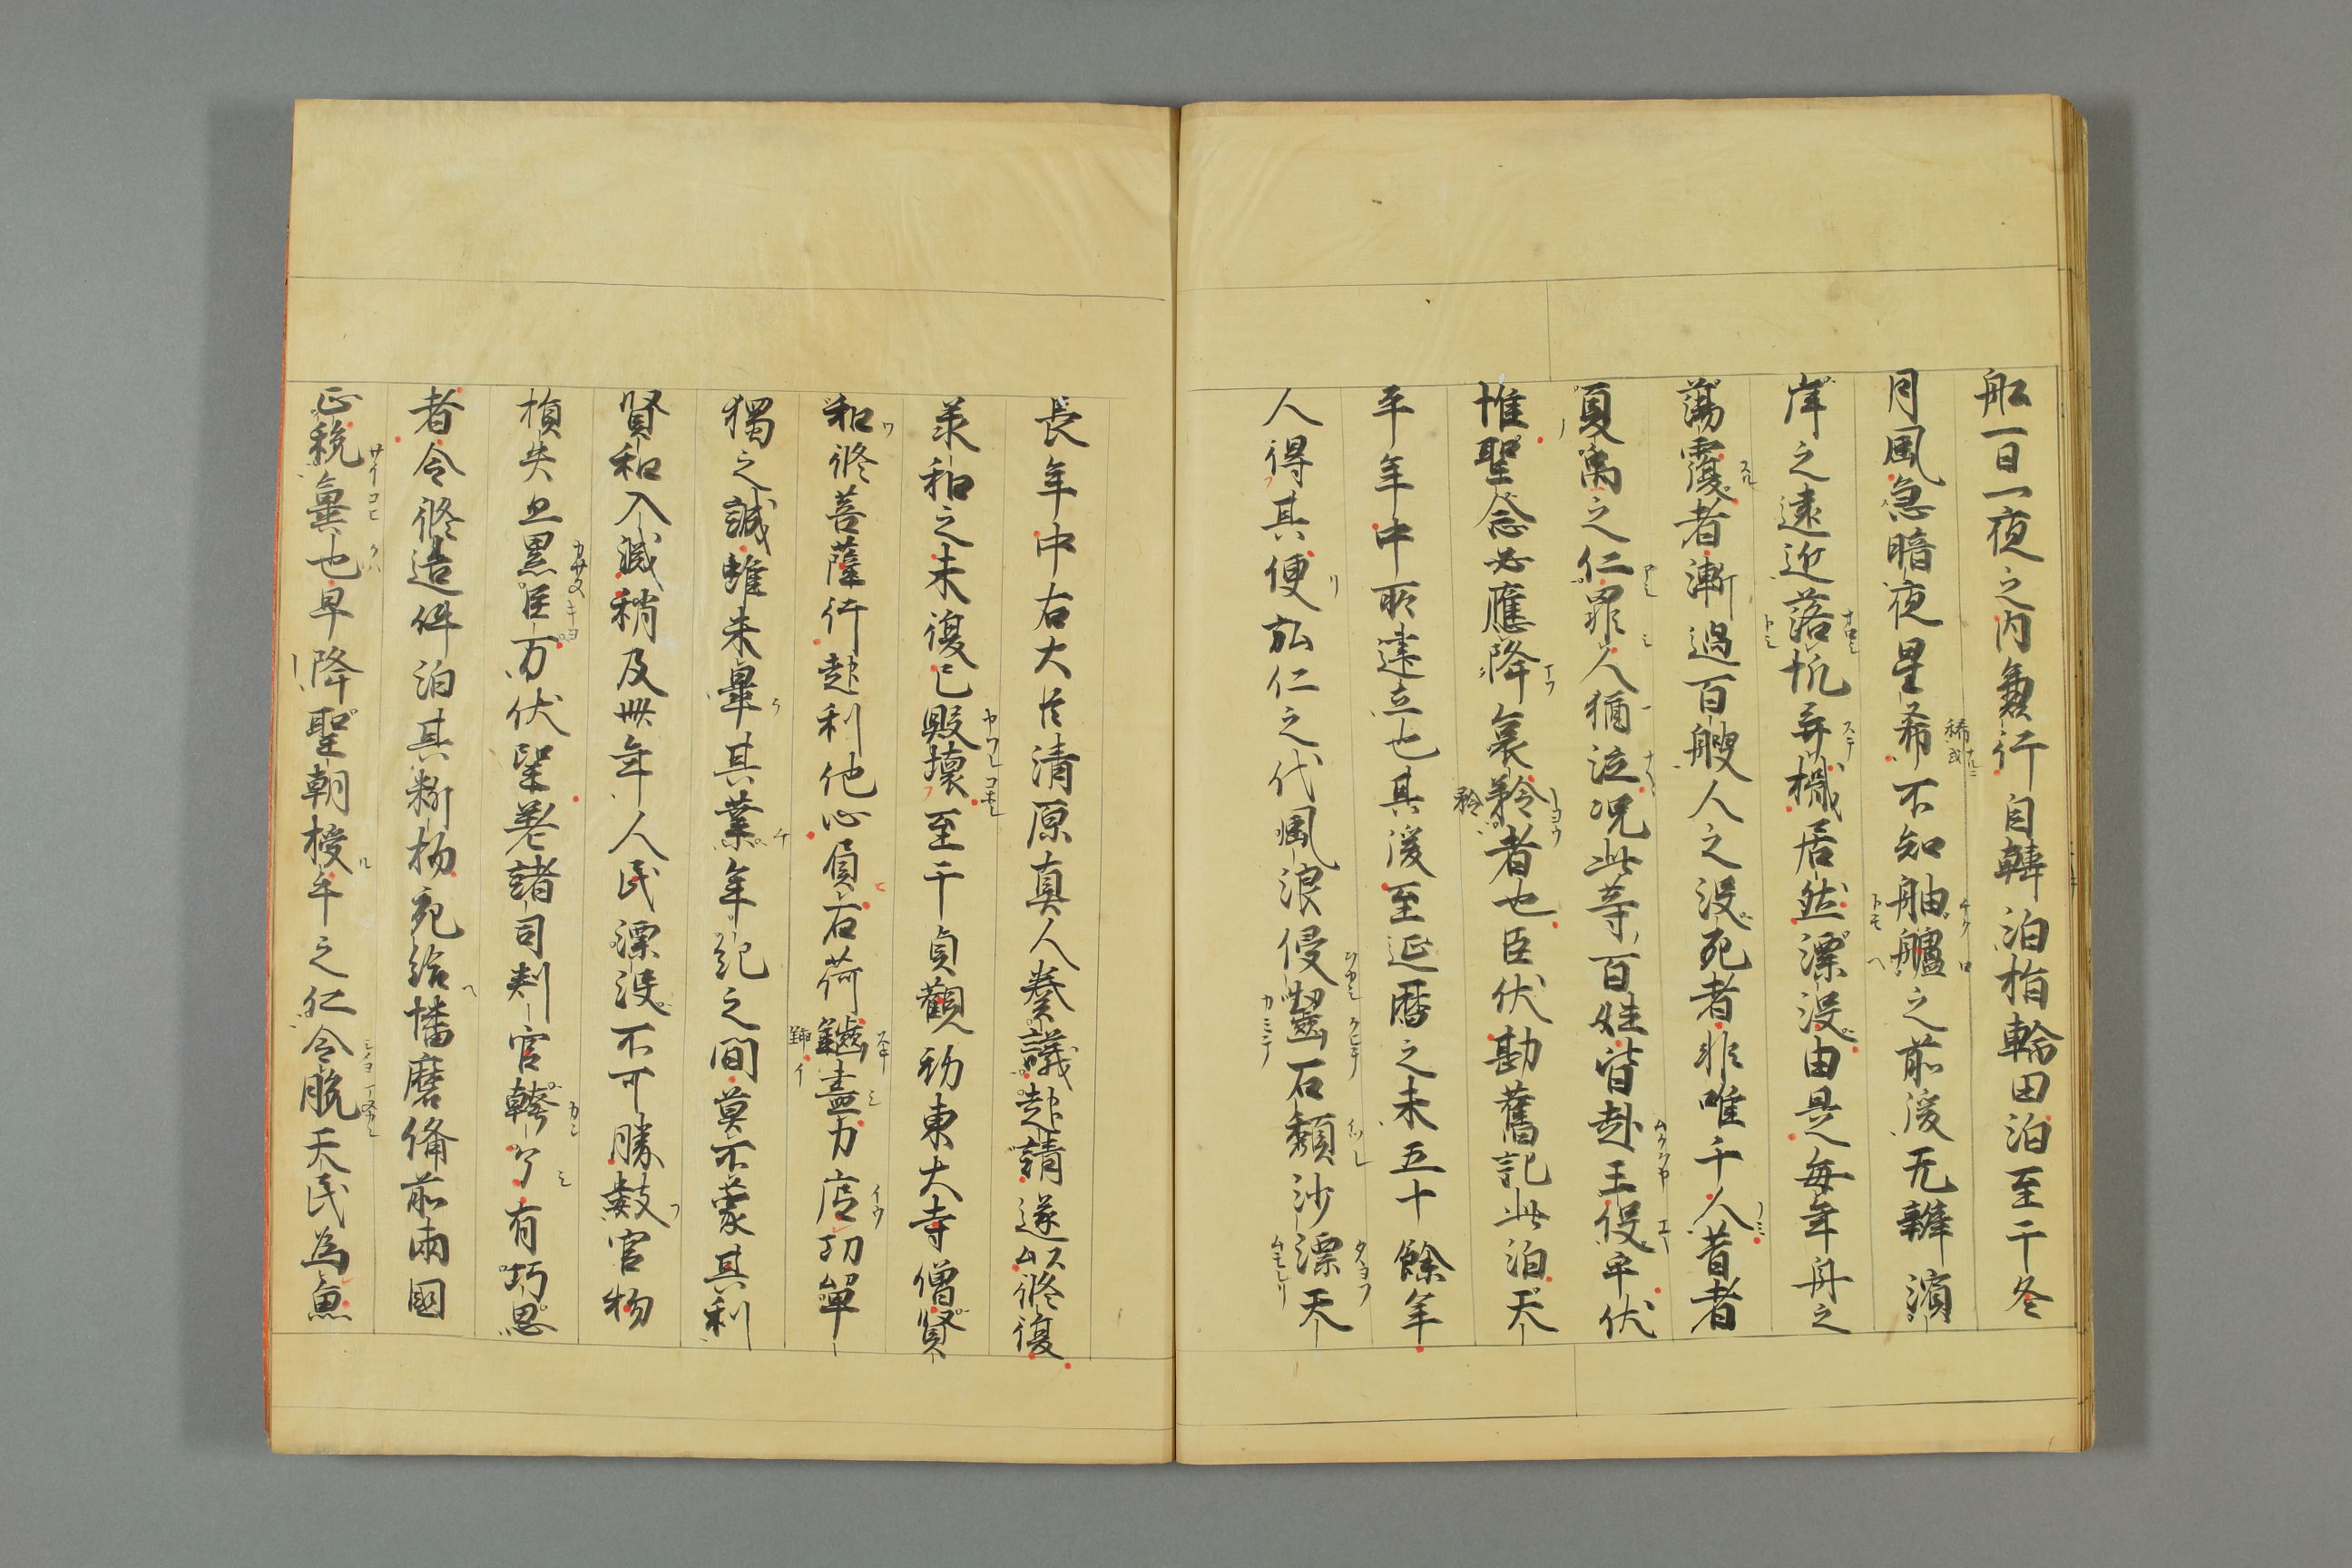 舩一日一夜之内兼行自韓泊指輪田泊至于冬
月風急暗夜星希不知舳艫之前後无辨濱
岸之遠近落忼弃檝居然漂没由是毎年舟之
蕩覆者漸過百艘人之没死者非唯千人昔者
夏禹之仁罪人猶泣况此等百姓皆赴王役乎伏
惟聖念必應降哀矜者也臣伏勘舊記此泊天
平年中所建立也其後至延暦之末五十餘年
人得其便弘仁之代風浪侵齧石頽沙漂天
長年中右大臣清原真人奏議起請遂以修復
義和之末復已毀壊至于貞觀初東大寺僧賢
和修菩薩行起利他心負石荷鍤盡力底功單
獨之誠雖未畢其業年紀之間莫不蒙其利
賢和入滅稍及卌年人民漂没不可勝數官物
損失亦累巨万伏望差諸司判官幹了有巧思
者令修造件泊其料物宛給播磨備前兩國
正税冀也早降聖朝授手之仁令脱天民為魚